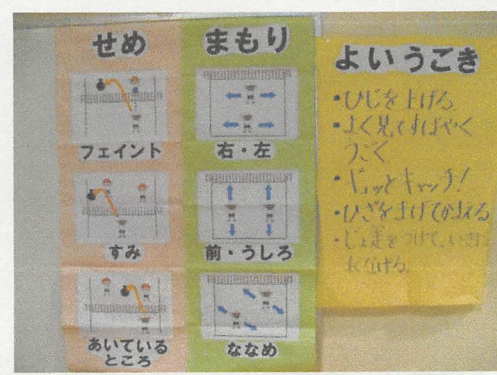 せめ
フェイント
すみ
あいている
ところ
まもり
右・左
前・うしろ
ななめ
よいうごき
・ひじを上げる
・よく見てすばやく
うごく
・ギュッとキャッチ!
・ひざをまげてかまえる
・じょ走をつけて、